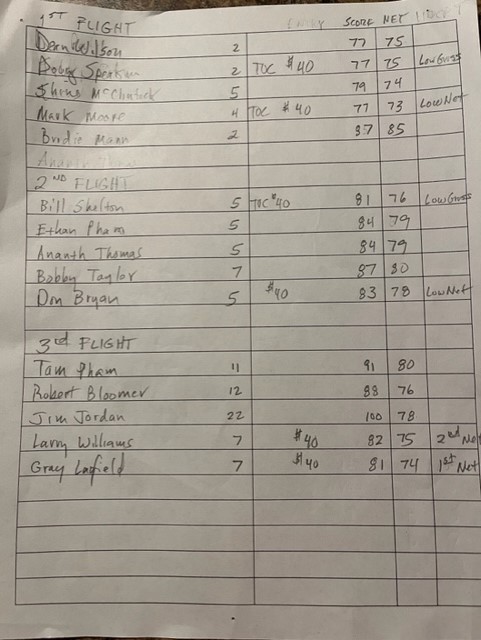 1ST FLIGHT ENTRY SCORE NET
Wilson 2 77 75
Bobby 2 TOC $40 77 75 Low Gross
5 79 74
Mark Moore 4 TOC $40 77 73 Low Net
Brodie Mann 2 87 85
Ananth
2ND FLIGHT
Bill Shelton 5 TOC $40 81 76 Low Gross
Ethan Pham 5 84 79
Ananth Thomas 5 84 79
Bobby Taylor 7 87 80
Don Bryan 5 $40 83 78 Low Net
3rd FLIGHT
Tam Pham 11 91 80
Robert Bloomer 12 88 76
Jim Jordan 22 100 78
Larry Williams 7 $40 82 75 2nd Net
Gray 7 $40 81 74 1st Net